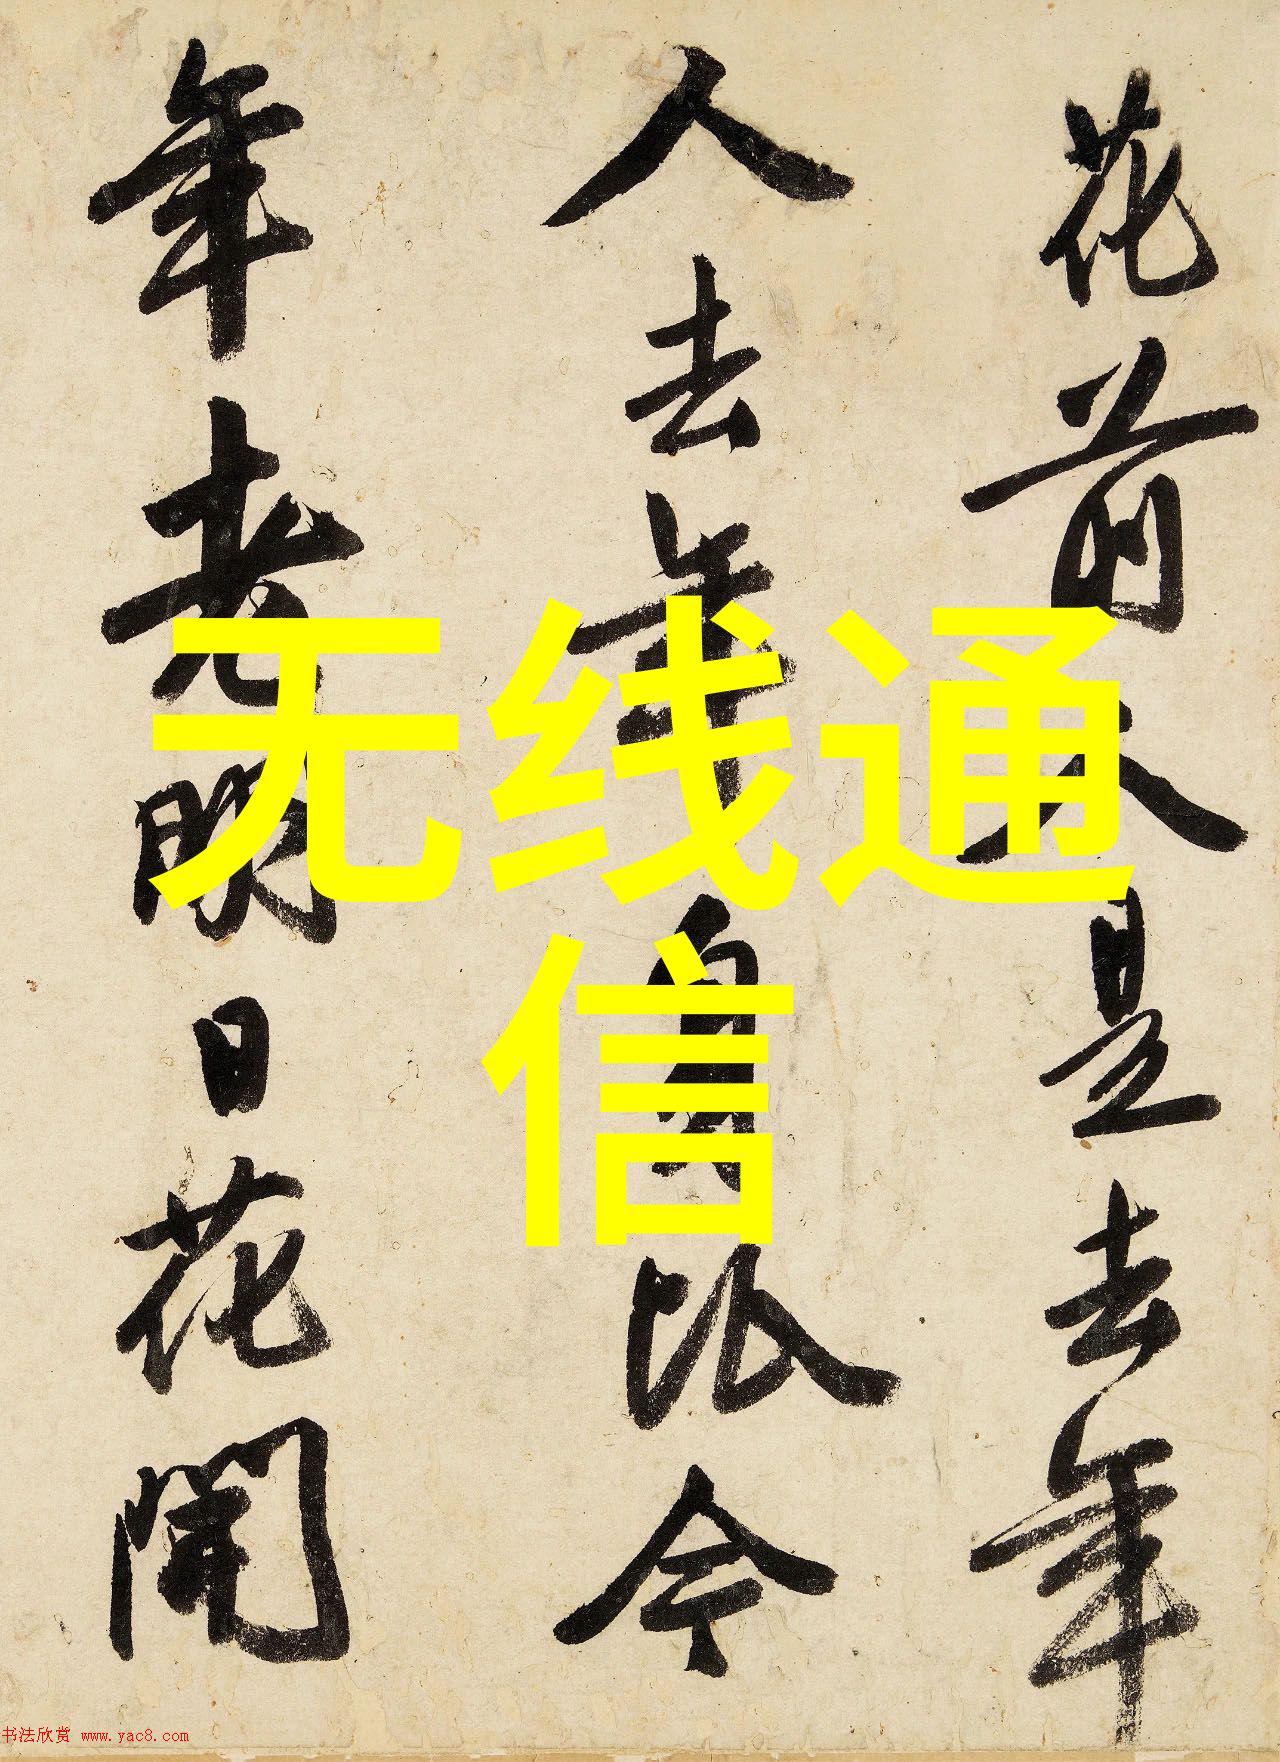 花前人是去年
人去年身比今
年老明日花開
无线通
信
书法欣赏 www.yac8.com